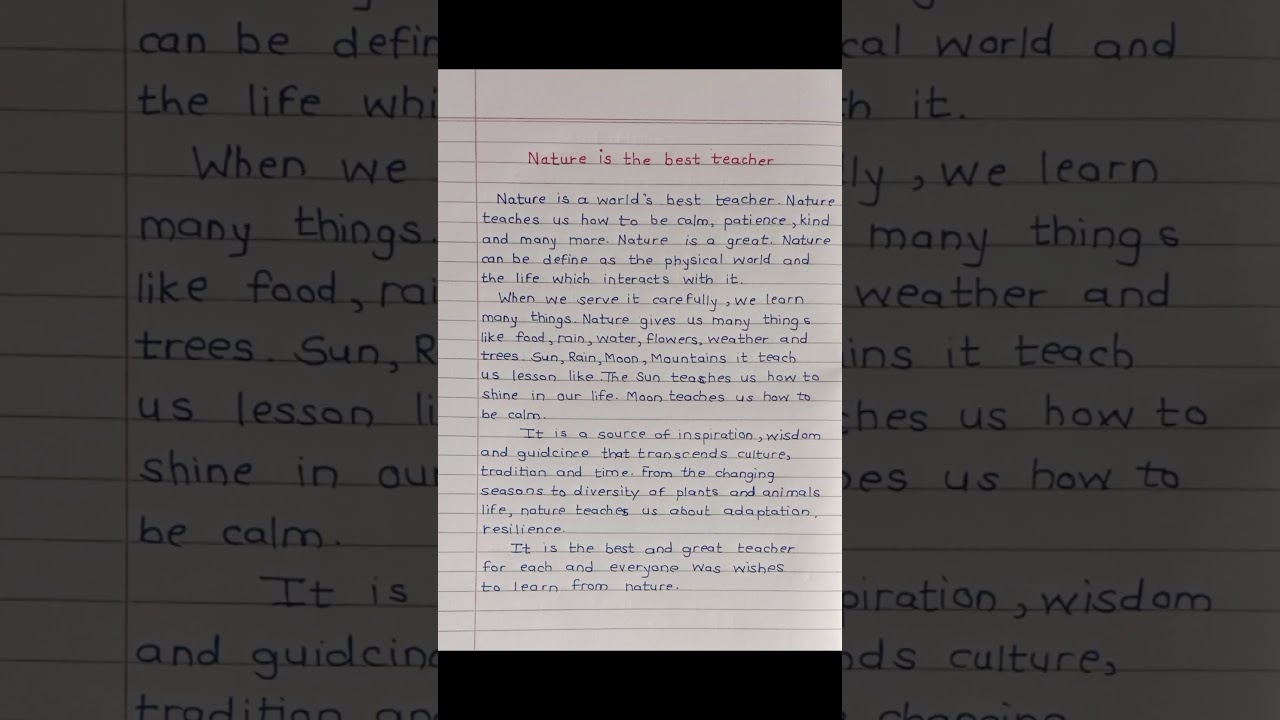 Nature is the best teacher
Nature is a world's best teacher. Nature
teaches us how to be calm, patience, kind
and many more. Nature is a great. Nature
can be define as the physical world and
the life which interacts with it.
When we serve it carefully, we learn
many things. Nature gives us many things
like food, rain, water, flowers, weather and
trees. Sun, Rain, Moon, Mountains it teach
us lesson like. The Sun teaches us how to
shine in our life. Moon teaches us how to
be calm.
It is a source of inspiration, wisdom
and guidcince that transcends culture,
tradition and time. From the changing
seasons to diversity of plants and animals
life, nature teaches us about adaptation,
resilience.
It is the best and great teacher
for each and everyone was wishes
to learn from nature.